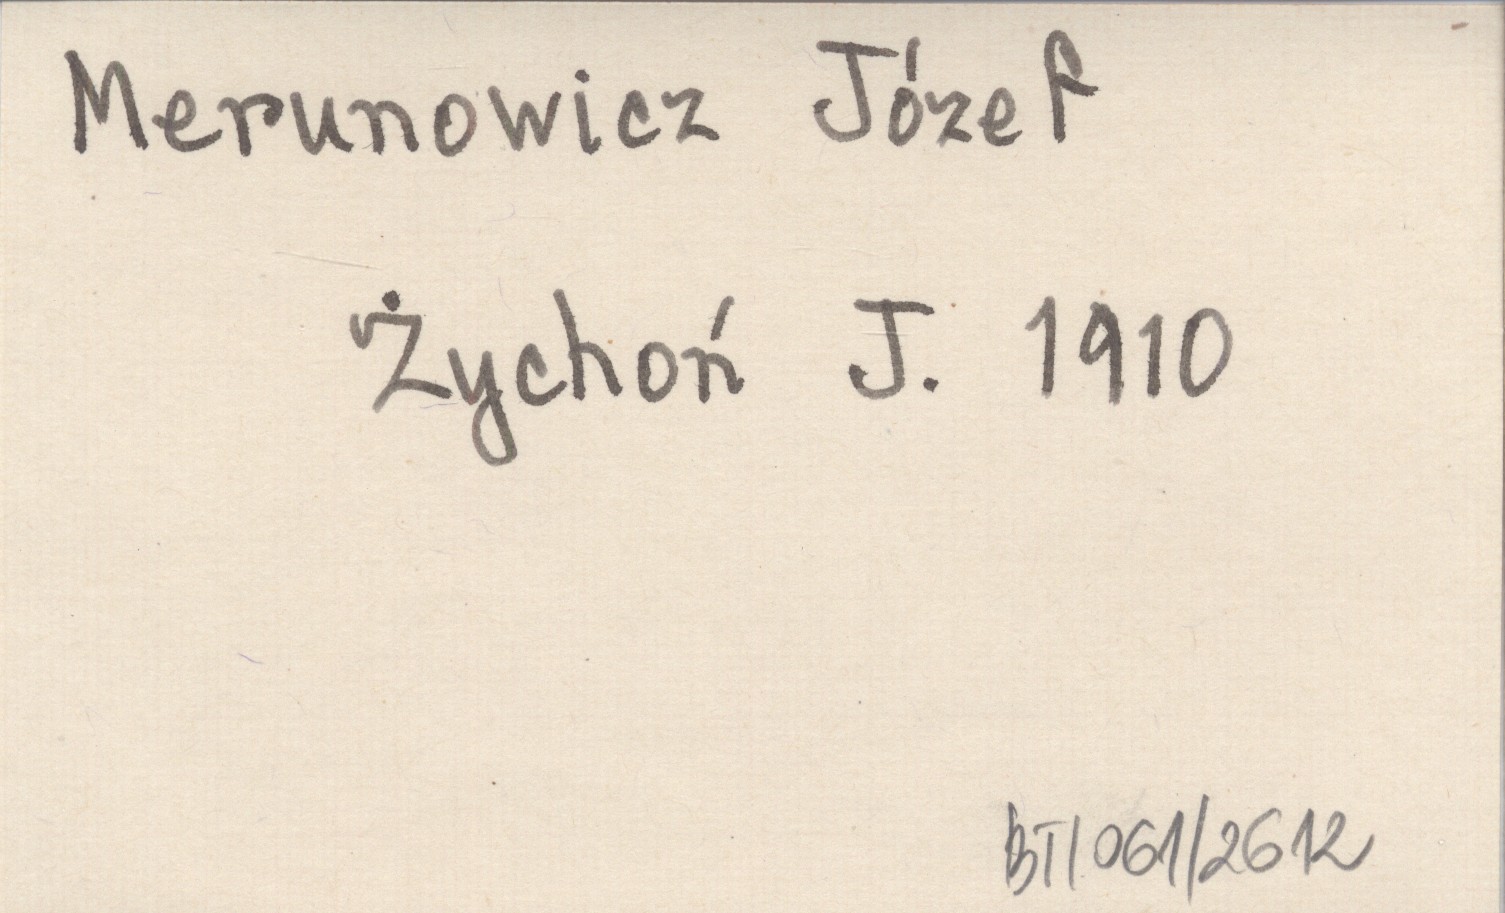 Merunowicz Józef
Żychoń J. 1910
BT/061/2612